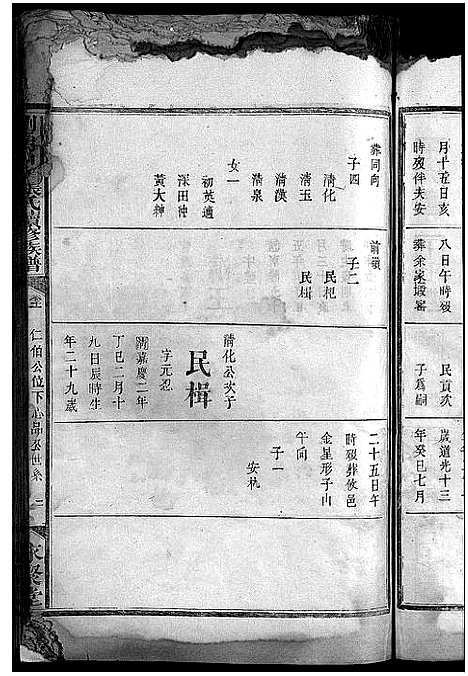 月十五日亥
時歿伴夫安
八日午時歿
葬余家塅窰
民貢次
子爲嗣
歲道光十三
年癸巳七月
葬同向
子四
清化
清玉
清漢
清泉
女一
初英適
深田沖
黃大紳
前嶺
子二
民杞
民楫
清化公次子
民楫
字元忍
清嘉慶二年
丁巳二月十
九日辰時生
年二十九歲
二十五日午
時歿葬攸邑
金星形子山
午向
子一
安杭
氏續修族譜
仁伯公位下心品公世系
二